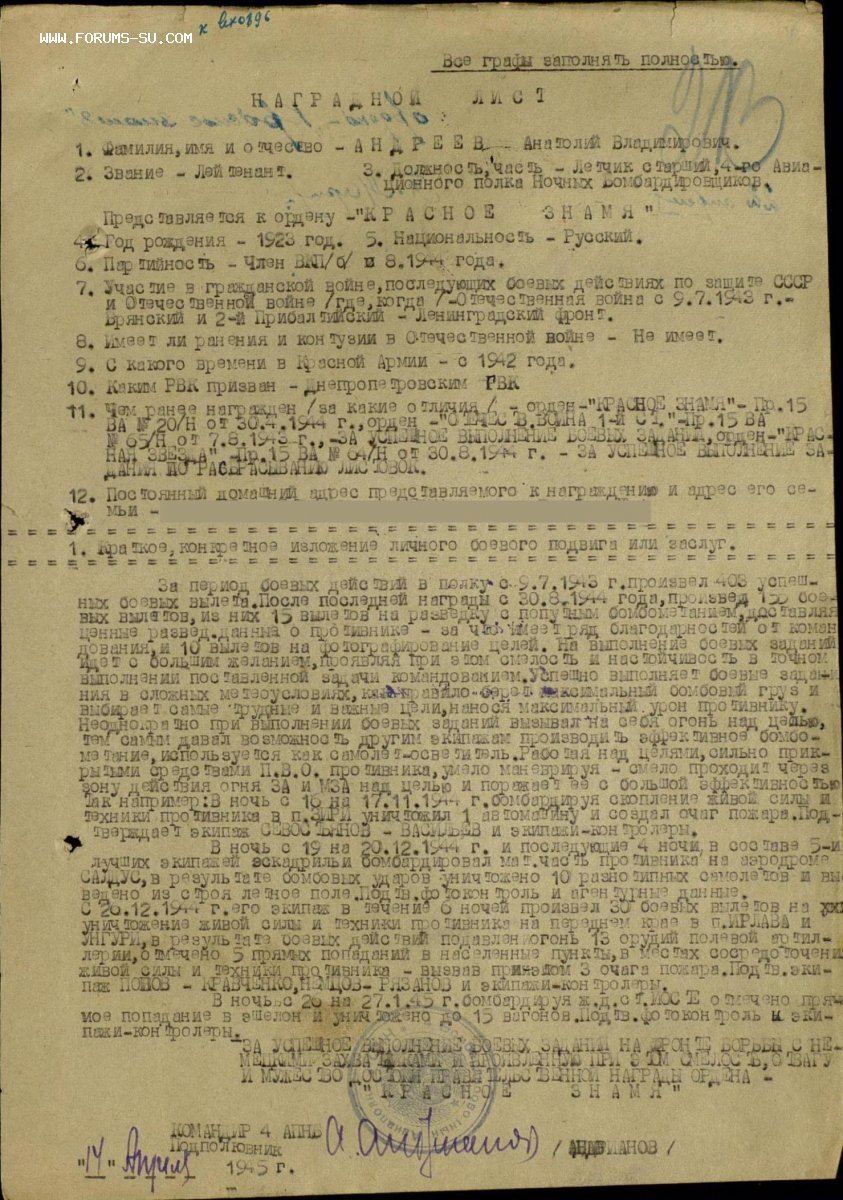 www.forums-su.com
Все графы заполнять полностью.
НАГРАДНОЙ ЛИСТ
1. Фамилия,имя и отчество - АНДРЕЕВ Анатолий Владимирович.
2. Звание - Лейтенант. 3. Должность,часть - Летчик старший,4-го Авиа-
ционного полка Ночных Бомбардировщиков.
Представляется к ордену -"КРАСНОЕ ЗНАМЯ"
4. Год рождения - 1923 год. 5. Национальность - Русский.
6. Партийность - Член ВКП/б/ с 8.1944 года.
7. Участие в гражданской войне,последующих боевых действиях по защите СССР
и Отечественной войне /где,когда /-Отечественная война с 9.7.1943 г.-
Брянский и 2-й Прибалтийский - Ленинградский фронт.
8. Имеет ли ранения и контузии в Отечественной войне - Не имеет.
9. С какого времени в Красной Армии - с 1942 года.
10. Каким РВК призван - Днепропетровским РВК
11. Чем ранее награжден /за какие отличия/ - орден-"КРАСНОЕ ЗНАМЯ"- Пр.15
ВА № 20/Н от 30.4.1944 г.,орден -"ОТЕЧЕСТВ.ВОЙНА 1-й СТ."-Пр.15 ВА
№ 65/Н от 7.8.1943 г.,-ЗА УСПЕШНОЕ ВЫПОЛНЕНИЕ БОЕВЫХ ЗАДАНИЙ,орден-"КРАС-
НАЯ ЗВЕЗДА" -Пр.15 ВА № 64/Н от 30.8.1944 г. - ЗА УСПЕШНОЕ ВЫПОЛНЕНИЕ ЗА-
ДАНИЯ ПО РАЗБРАСЫВАНИЮ ЛИСТОВОК.
12. Постоянный домашний адрес представляемого к награждению и адрес его се-
мьи -
1. Краткое,конкретное изложение личного боевого подвига или заслуг.
За период боевых действий в полку с 9.7.1943 г.произвел 403 успеш-
ных боевых вылета.После последней награды с 30.8.1944 года,произвел боё-
вых вылетов,из них 15 вылетов на разведку с попутным бомбометанием,доставляя
ценные развед.данные о противнике - за что имеет ряд благодарностей от коман
дования,и 10 вылетов на фотографирование целей. На выполнение боевых заданий
идет с большим желанием,проявляя при этом смелость и настойчивость в точном
выполнении поставленной задачи командованием.Успешно выполняет боевые зада-
ния в сложных метеоусловиях,как правило берет максимальный бомбовый груз и
выбирает самые трудные и важные цели,нанося максимальный урон противнику.
Неоднократно при выполнении боевых заданий вызывал на себя огонь над целью,
тем самым давал возможность другим экипажам производить эффективное бомбо-
метание,используется как самолет-осветитель.Работая над целями,сильно прик-
рытыми средствами П.В.О. противника,умело маневрируя - смело проходит через
зону действия огня ЗА и МЗА над целью и поражает ее с большой эффективностью
Так например:В ночь с 16 на 17.11.1944 г.бомбардируя скопление живой силы и
техники противника в п.ЗИРИ уничтожил 1 автомашину и создал очаг пожара.Под-
тверждает экипаж СЕВОСТЬЯНОВ - ВАСИЛЬЕВ и экипажи-контролеры.
В ночь с 19 на 20.12.1944 г. и последующие 4 ночи,в составе 5-и
лучших экипажей эскадрильи бомбардировал мат.часть противника на аэродроме
САЛДУС,в результате бомбовых ударов уничтожено 10 разнотипных самолетов и выв
ведено из строя летное поле.Подтв.фотоконтроль и агентурные данные.
С 26.12.1944 г.его экипаж в течение 6 ночей произвел 30 боевых вылетов на
уничтожение живой силы и техники противника на переднем крае в п.ИРЛАВА и
УНГУРИ,в результате боевых действий подавлен огонь 13 орудий полевой артил-
лерии,отмечено 5 прямых попаданий в населенные пункты,в местах сосредоточения
живой силы и техники противника - вызвав при этом 3 очага пожара.Подтв.эки-
паж ПОПОВ - КРАВЧЕНКО,НЕМЦОВ- РЯЗАНОВ и экипажи-контролеры.
В ночь с 26 на 27.1.45 г.бомбардируя ж.д.ст.ИОСТЕ отмечено пря-
мое попадание в эшелон и уничтожено до 15 вагонов.Подтв.фотоконтроль и эки-
пажи-контролеры.
ЗА УСПЕШНОЕ ВЫПОЛНЕНИЕ БОЕВЫХ ЗАДАНИЙ НА ФРОНТЕ БОРЬБЫ С НЕ-
МЕЦКИМИ ЗАХВАТЧИКАМИ И ПРОЯВЛЕННУЮ ПРИ ЭТОМ СМЕЛОСТЬ,ОТВАГУ
И МУЖЕСТВО ДОСТОИН ПРАВИТЕЛЬСТВЕННОЙ НАГРАДЫ ОРДЕНА -
"КРАСНОЕ ЗНАМЯ"
КОМАНДИР 4 АПНБ
Подполковник
"17" Апреля 1945 г.